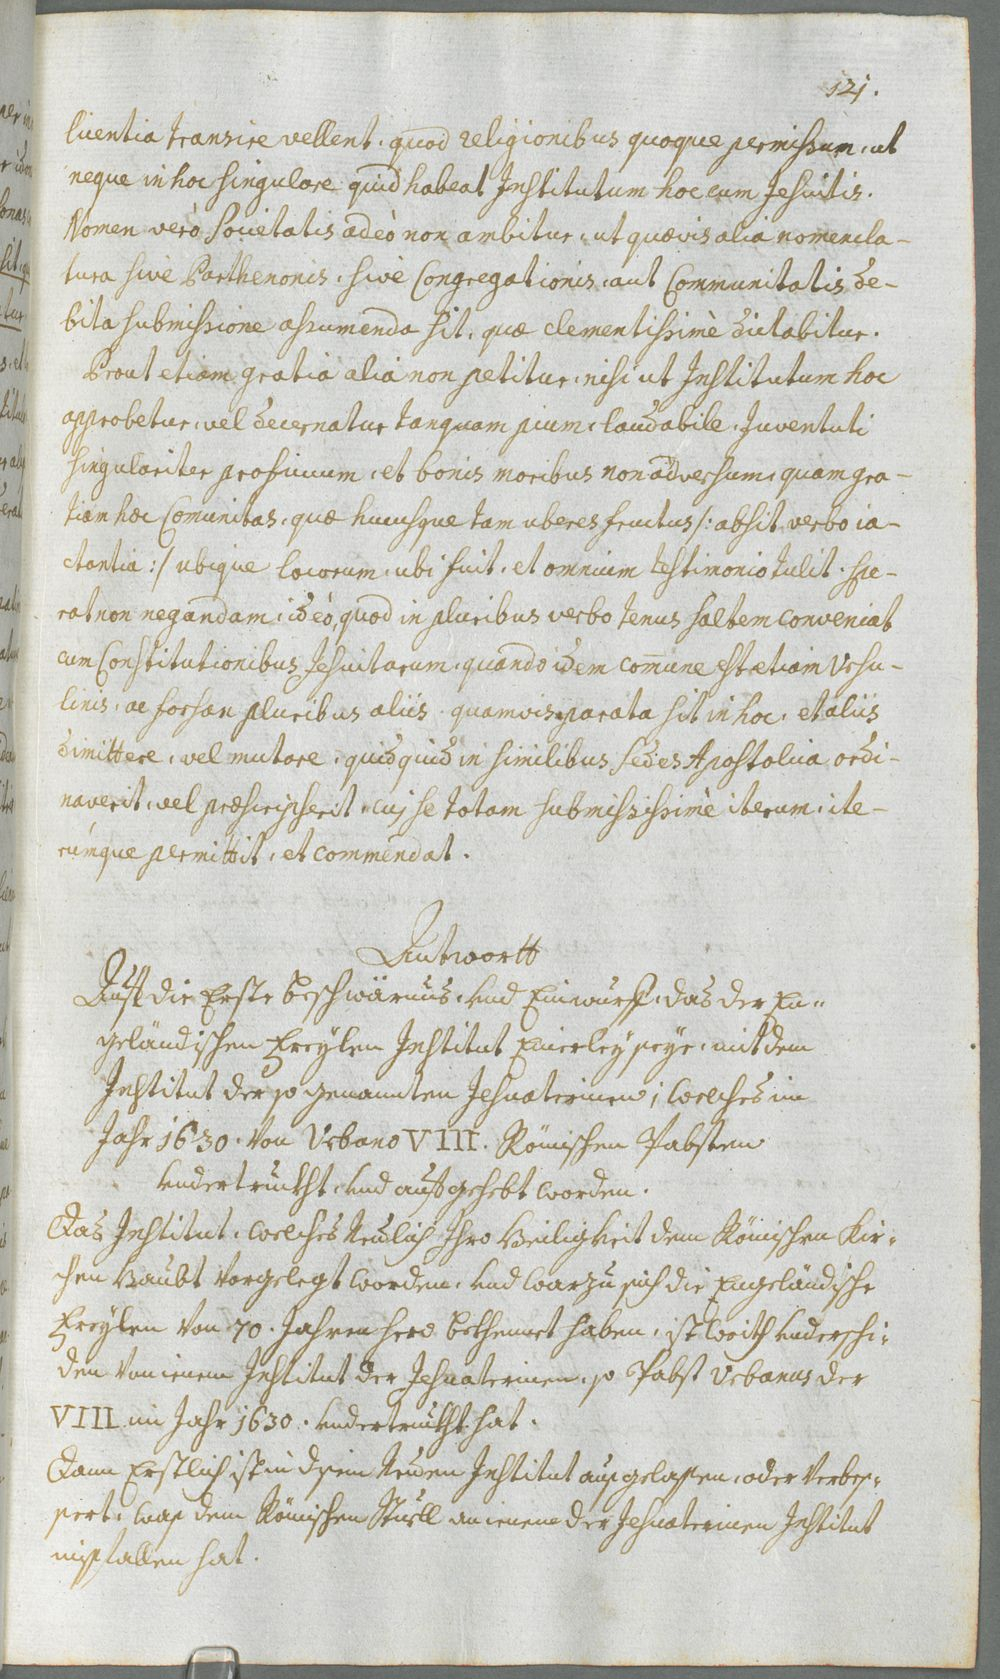 121.
licentia transire vellent. quod religionibus quoque permissum, ut
neque in hoc singulare quid habeat Institutum hoc cum Jesuitis.
Nomen verò Societatis adeò non ambitur, ut quævis alia nomencla-
tura sive Parthenonis, sive Congregationis, aut Communitatis de-
bita submissione assumenda sit, quæ clementissimè dictabitur.
Prout etiam gratia alia non petitur, nisi ut Institutum hoc
approbetur, vel decernatur tanquam pium, laudabile, Juventuti
singulariter proficuum, et bonis moribus non adversum, quam gra-
tiam hæc Comunitas, quæ hucusque tam uberes fructus /: absit verbo ia-
ctantia :/ ubique locorum, ubi fuit, et omnium testimonio tulit. spe-
rat non negandam, ideò, quod in pluribus verbo tenus saltem conveniat
cum Constitutionibus Jesuitarum, quando idem comune est etiam Ursu-
linis, ac forsan pluribus aliis. quamvis parata sit in hoc, et aliis
dimittere, vel mutare, quidquid in similibus Sedes Apostolica ordi-
naverit, vel præscripserit, cuj se totam submississimè iterum, ite-
rúmque permittit, et commendat.
Antwortt
Auff die Erste beschwärnus, und Einwurff, das der En-
geländischen Freylen Institut Einerley seye, mit dem
Institut der so genannten Jesuaterinen, welches im
Jahr 1630. von Urbano VIII. Römischen Pabsten
undertruckht, und auffgehebt worden.
Das Institut, welches Neulich Ihro Heiligkeit dem Römischen Kir-
chen Haubt vorgelegt worden, und warzu sich die Engeländische
Freylen von 70. Jahren hero bekhennet haben, ist weith underschi-
den von ienem Institut der Jesuaterinen, so Pabst Urbanus der
VIII im Jahr 1630. undertruckht hat.
Dann Erstlich ist in disem Neuen Institut ausgelassen, oder verbes-
sert, was dem Römischen Stuell an ienem der Jesuaterinen Institut
missfallen hat.